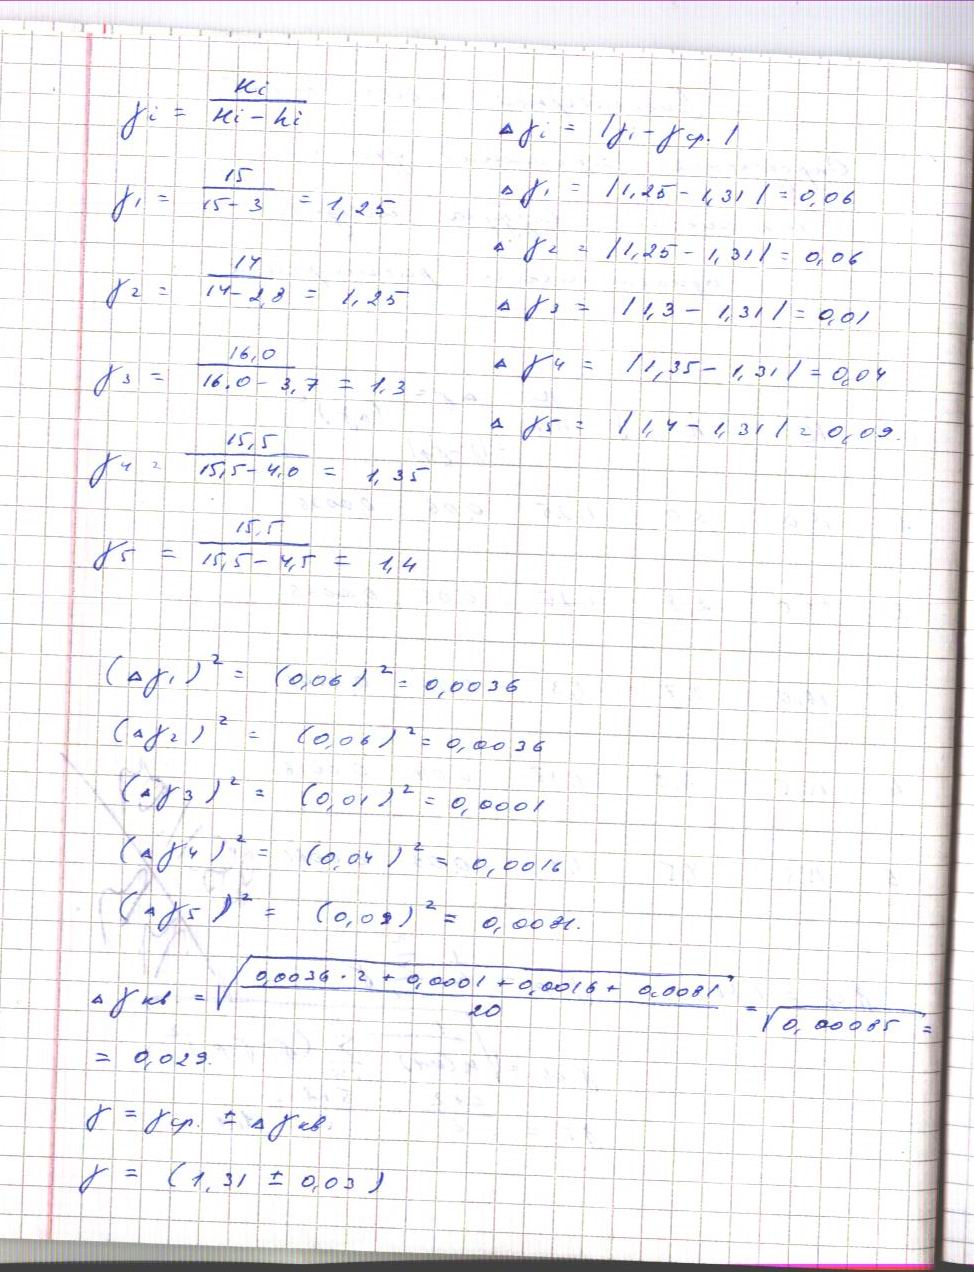 γi = Hi / (Hi − hi)
γ1 = 15 / (15 − 3) = 1,25
γ2 = 14 / (14 − 2,8) = 1,25
γ3 = 16,0 / (16,0 − 3,7) = 1,3
γ4 = 15,5 / (15,5 − 4,0) = 1,35
γ5 = 15,5 / (15,5 − 4,5) = 1,4
Δγi = |γi − γср.|
Δγ1 = |1,25 − 1,31| = 0,06
Δγ2 = |1,25 − 1,31| = 0,06
Δγ3 = |1,3 − 1,31| = 0,01
Δγ4 = |1,35 − 1,31| = 0,04
Δγ5 = |1,4 − 1,31| = 0,09.
(Δγ1)² = (0,06)² = 0,0036
(Δγ2)² = (0,06)² = 0,0036
(Δγ3)² = (0,01)² = 0,0001
(Δγ4)² = (0,04)² = 0,0016
(Δγ5)² = (0,09)² = 0,0081.
Δγкв = √((0,0036 · 2 + 0,0001 + 0,0016 + 0,0081) / 20) = √0,00085 =
= 0,029.
γ = γср. ± Δγкв.
γ = (1,31 ± 0,03)